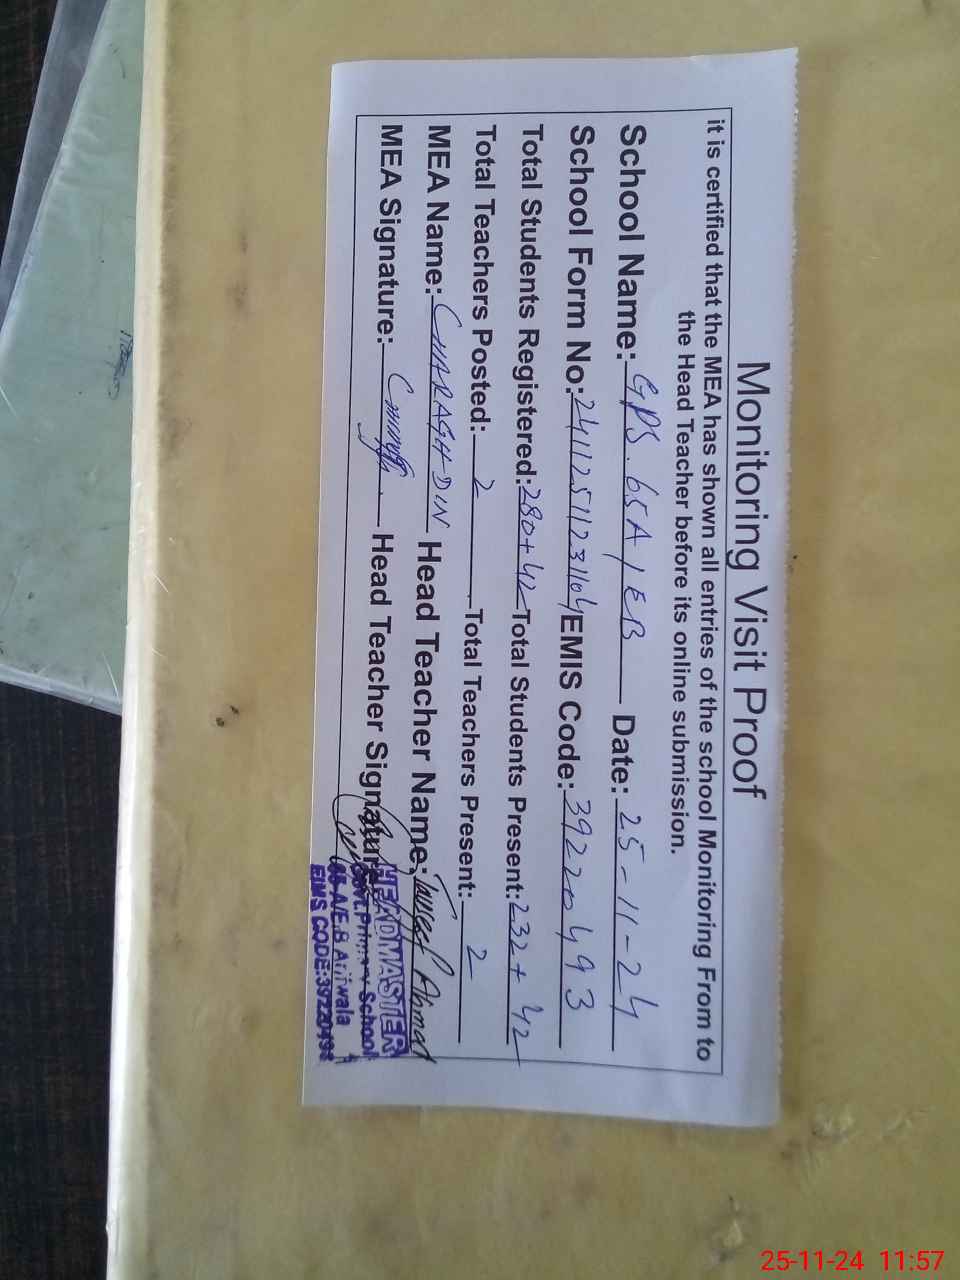 Monitoring Visit Proof
it is certified that the MEA has shown all entries of the school Monitoring From to
the Head Teacher before its online submission.
School Name: GPS. 65A/EB Date: 25-11-24
School Form No: 24112511231104 EMIS Code: 39220493
Total Students Registered: 280+42 Total Students Present: 232+42
Total Teachers Posted: 2 Total Teachers Present: 2
MEA Name: CHARAGH DIN Head Teacher Name: Ahmad
MEA Signature: Head Teacher Signature
HEADMASTER
Govt. Primary School
65-A/E.B Arifwala
EIMS CODE:39220493
25-11-24 11:57